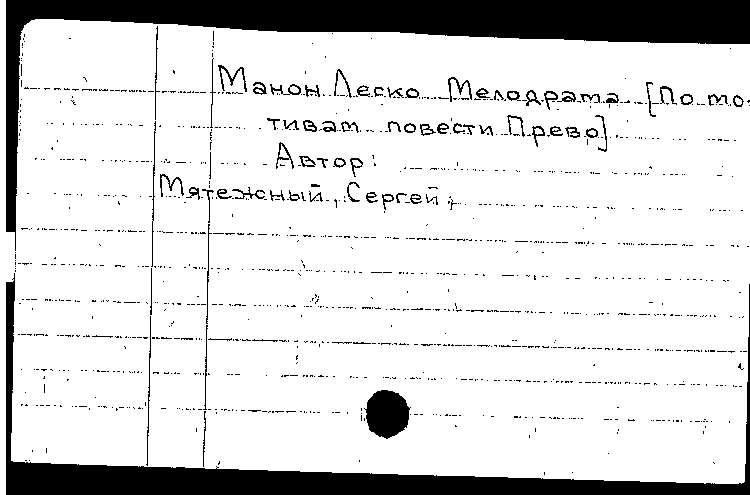 Манон Леско Мелодрама [По мо-
тивам повести Прево]
Автор:
Мятежный, Сергей,